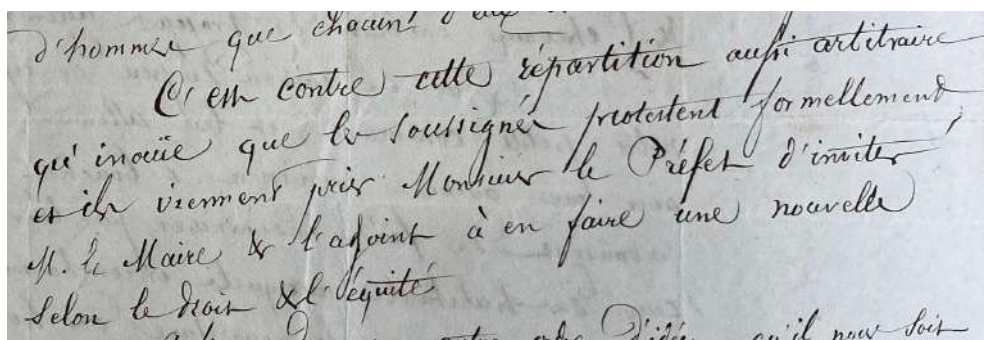 d'hommes que chacun d'eux
C'est contre cette répartition aussi arbitraire
qu'inouïe que les soussignés protestent formellement
et ils viennent prier Monsieur le Préfet d'inviter
M. le Maire & l'adjoint à en faire une nouvelle
selon le droit & l'équité
ordre d'idées qu'il nous soit